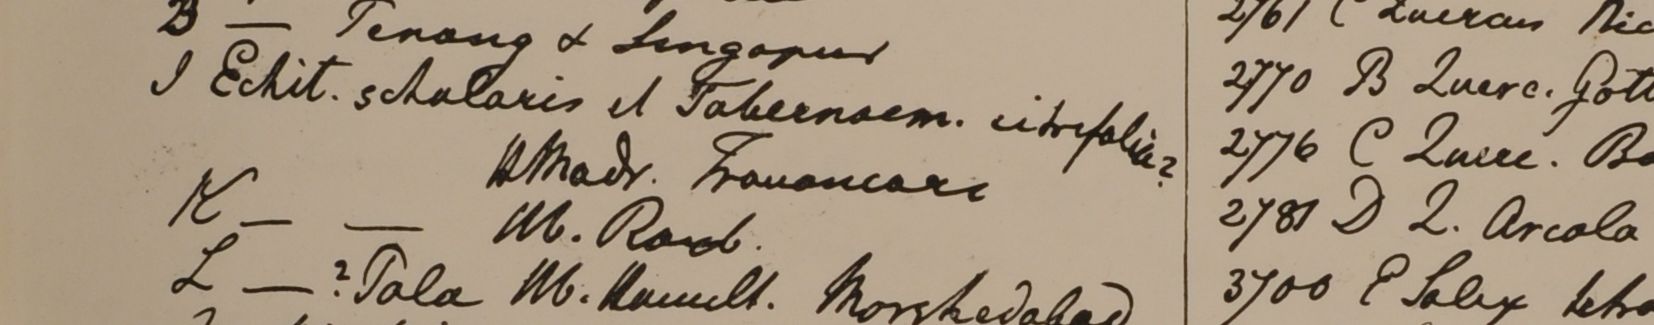 B — Penang & Singapur
I Echit. scholaris et Tabernaem. citrifolia?
H Madr. Travancore
K — — Hb. Roxb.
L — ? Pala Hb. Hamilt. Morshedabad
2761 C Quercus
2770 B Querc. Gott
2776 C Querc. Ba
2781 D Q. Arcola
3700 E Salix tetra